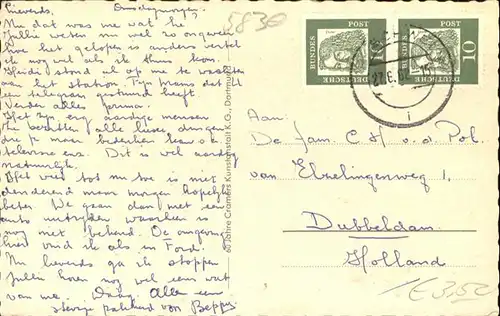 Lieverds, Donderdagmorgen.
Nu dat was me wat hè?
Jullie weten nu wel zo ongeveer
hoe het gelopen is anders vertel
ik nog wel als ik thuis kom.
Heidi stond al op me te wachten
aan het station Typ mams dat ze
een telegram gestuurd heeft.
Verder alles prima.
Het zijn erg aardige mensen
die bezitten alle luxe dingen
die je maar bedenken kan o.k.
televisie enz. Dit is wel aardig
natuurlijk.
Het weer tot nu toe is niet
denderend maar morgen hopelijk
beter. We gaan dan met een
auto uitrijden waarheen is
nog niet bekend. De omgeving
hier vind ik als in
Nu lieverds ga ik stoppen
Jullie horen nog wel een wat
van me. Daag. Allen een
stevige pakkerd van Beppy
5830
60 Jahre Cramers Kunstanstalt K.G., Dortmund
DEUTSCHE BUNDESPOST
DEUTSCHE BUNDESPOST 10
27.6.
i
Aan:
De fam. C H v. d. Pol
van Elzelingenweg 1,
Dubbeldam
Holland
€3,50